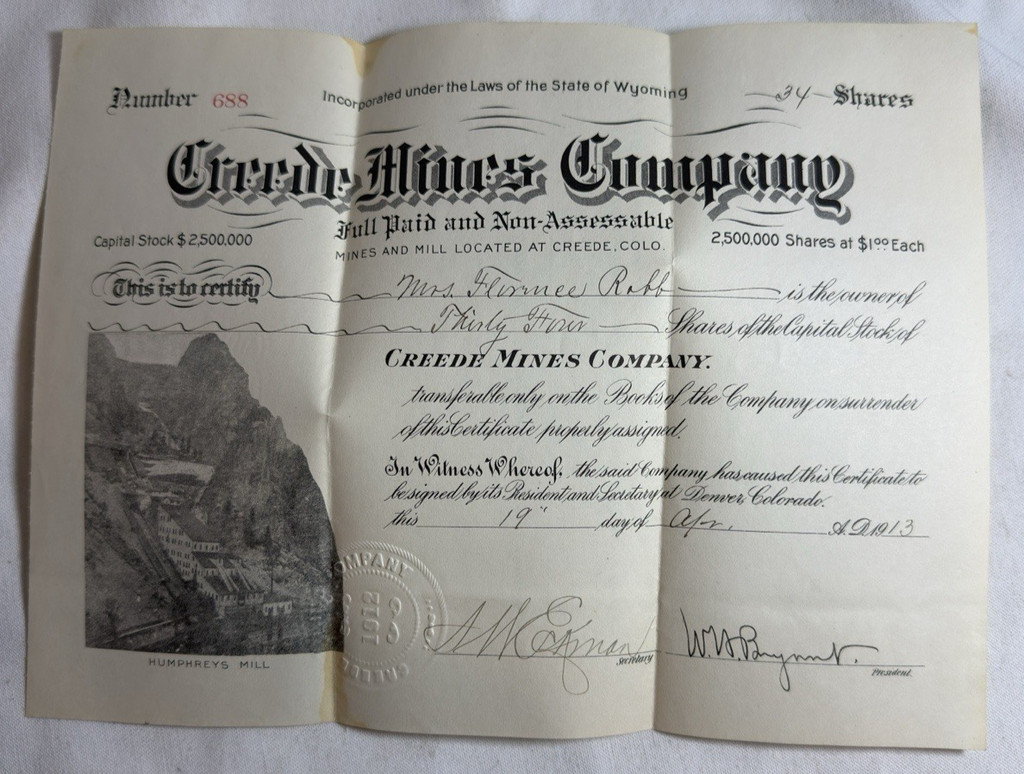 Number 688
Incorporated under the Laws of the State of Wyoming
34 Shares
Creede Mines Company
Full Paid and Non-Assessable
Capital Stock $2,500,000
MINES AND MILL LOCATED AT CREEDE, COLO.
2,500,000 Shares at $1.00 Each
This is to certify Mrs. Florence Robb is the owner of
Thirty Four Shares of the Capital Stock of
CREEDE MINES COMPANY.
transferable only on the Books of the Company on surrender
of this Certificate properly assigned.
In Witness Whereof, the said Company has caused this Certificate to
be signed by its President and Secretary at Denver, Colorado.
this 19" day of Apr. A.D. 1913
COMPANY
1912
HUMPHREYS MILL
Secretary
President.